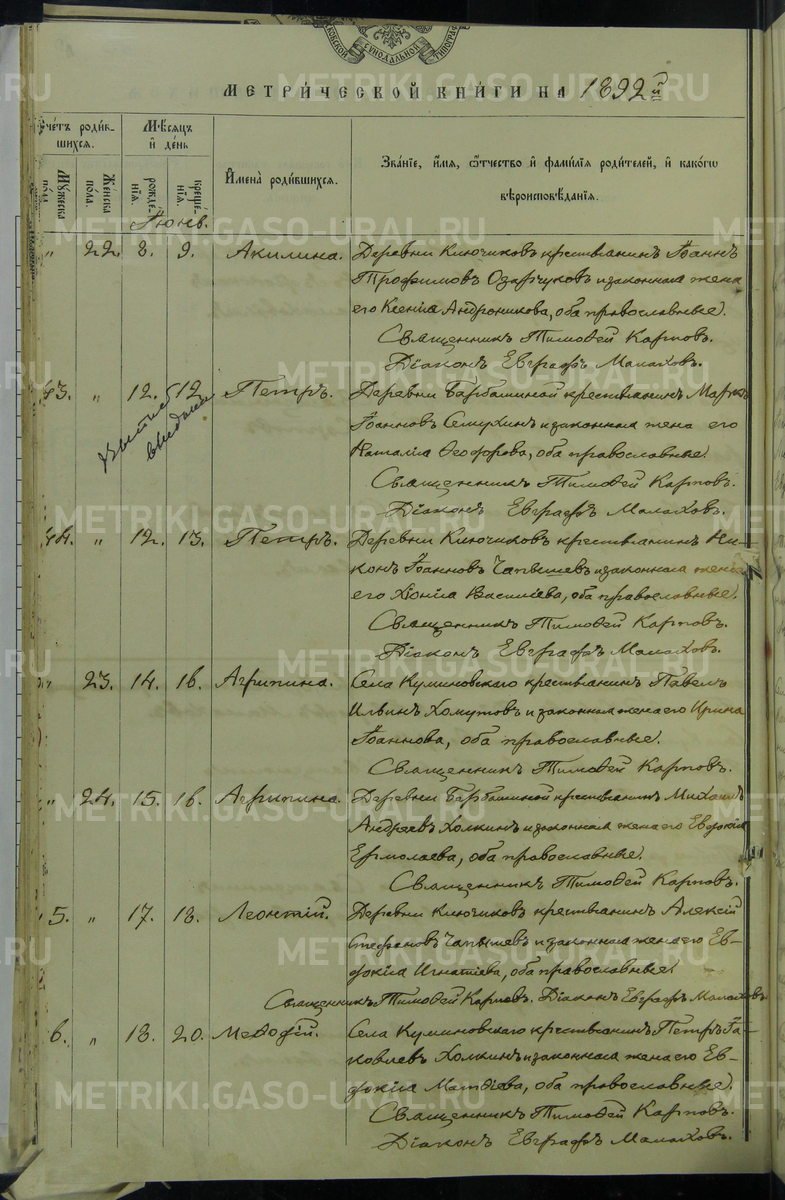 МЕТРИ́ЧЕСКОЙ КНИ́ГИ НА 1892й
Сче́тъ роди́в-
шихся.
Мꙋ́жеска по́ла.
Же́нска по́ла.
Мѣ́сяцъ
и҆ де́нь
рожде́-
нїѧ.
креще́-
нїѧ.
И҆мена̀ роди́вшихся.
Зва́нїе, и҆́мѧ, ѻ҆́тчество и҆ фами́лїѧ роди́телей, и҆ како́гѡ
вѣроисповѣ́данїѧ.
Іюнь.
" 22. 8. 9. Акилина. Деревни Ключиковъ крестьянинъ Іоаннъ
Трофимовъ и законная жена
его Ксенія Андроникова, оба православные.
Священникъ Тимоѳей Карповъ.
Діаконъ Евграфъ Малаховъ.
43. " 12. 12. Петръ. Деревни Барбашиной крестьянинъ Маркъ
Іоанновъ Семухинъ и законная жена его
Наталія Ѳеодорова, оба православные.
Священникъ Тимоѳей Карповъ.
Діаконъ Евграфъ Малаховъ.
44. " 12. 13. Петръ. Деревни Ключиковъ крестьянинъ Ни-
конъ Іоанновъ Чапышевъ и законная жена
его Хіонія Василіева, оба православные.
Священникъ Тимоѳей Карповъ.
Діаконъ Евграфъ Малаховъ.
" 23. 14. 16. Агрипина. Села крестьянинъ Павелъ
Ильинъ Хомутовъ и законная жена его Ирина
Іоаннова, оба православные.
Священникъ Тимоѳей Карповъ.
" 24. 15. 16. Агрипина. Деревни Барбашиной крестьянинъ Михаилъ
Андреевъ Холкинъ и законная жена его Евдокія
Ермолаева, оба православные.
Священникъ Тимоѳей Карповъ.
5. " 17. 18. Леонтій. Деревни Ключиковъ крестьянинъ Алексій
Стефановъ Чапышевъ и законная жена его Ев-
докія Игнатіева, оба православные.
Священникъ Тимоѳей Карповъ. Діаконъ Евграфъ Малаховъ
6. " 18. 20. Меѳодій. Села крестьянинъ Петръ Іа-
ковлевъ Холкинъ и законная жена его Ев-
докія Матѳіева, оба православные.
Священникъ Тимоѳей Карповъ.
Діаконъ Евграфъ Малаховъ.
METRIKI.GASO-URAL.RU